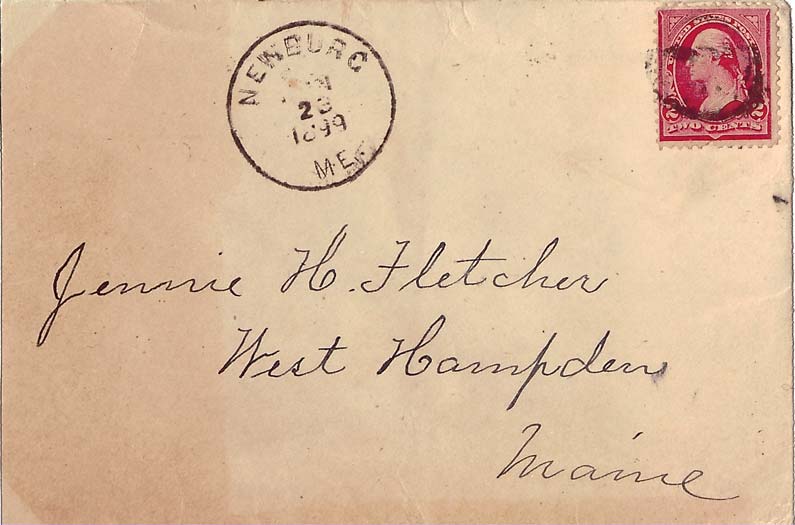 NEWBURG
23
1899
ME.
UNITED STATES POS
2 TWO CENTS 2
Jennie H. Fletcher
West Hampden
Maine